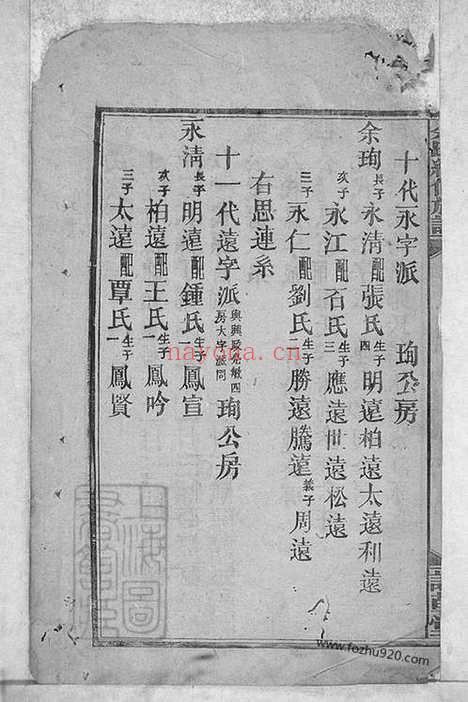 十代永字派 珣公房
余珣 長子永清 配張氏 生子四 明遠 柏遠 太遠 和遠
次子永江 配石氏 生子三 應遠 世遠 松遠
三子永仁 配劉氏 生子二 勝遠 騰遠 義子周遠
右思連系
十一代遠字派 珣公房
永清 長子明遠 配鍾氏 生子一 鳳宣
次子柏遠 配王氏 生子一 鳳吟
三子太遠 配覃氏 生子一 鳳賢
nayona.cn
www.fozhu920.com